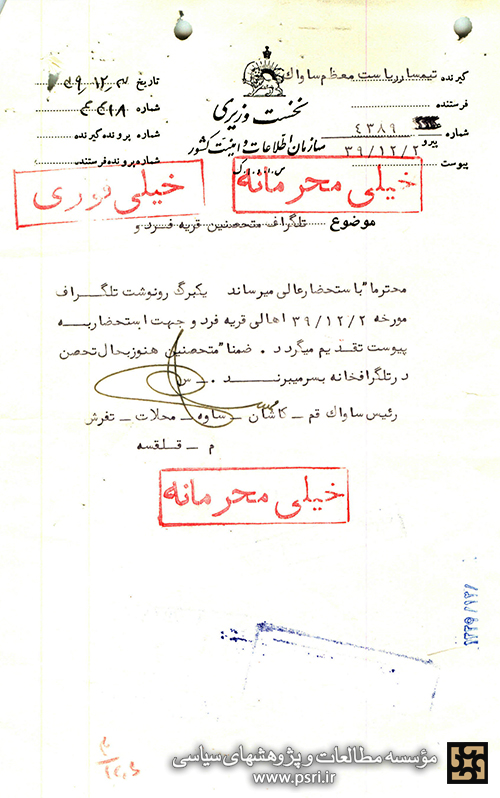 گیرنده تیمسار ریاست معظم ساواک
فرستنده
شماره
پیرو ۴۳۸۹
۳۹/۱۲/۲
پیوست
نخست وزیری
سازمان اطلاعات و امنیت کشور
س.ا.و.ا.ک
تاریخ
شماره ۴۴۱۸
شماره پرونده گیرنده
شماره پرونده فرستنده
خیلی محرمانه
خیلی فوری
موضوع تلگراف متحصنین قریه فرد و
محترما" باستحضار عالی میرساند یکبرگ رونوشت تلگراف
مورخه ۳۹/۱۲/۲ اهالی قریه فرد و جهت استحضار به
پیوست تقدیم میگردد. ضمنا" متحصنین هنوز بحال تحصن
در تلگرافخانه بسر میبرند. س
رئیس ساواک قم ـ کاشان ـ ساوه ـ محلات ـ تفرش
م ـ قلقسه
خیلی محرمانه
مؤسسه مطالعات و پژوهشهای سیاسی
www.psri.ir